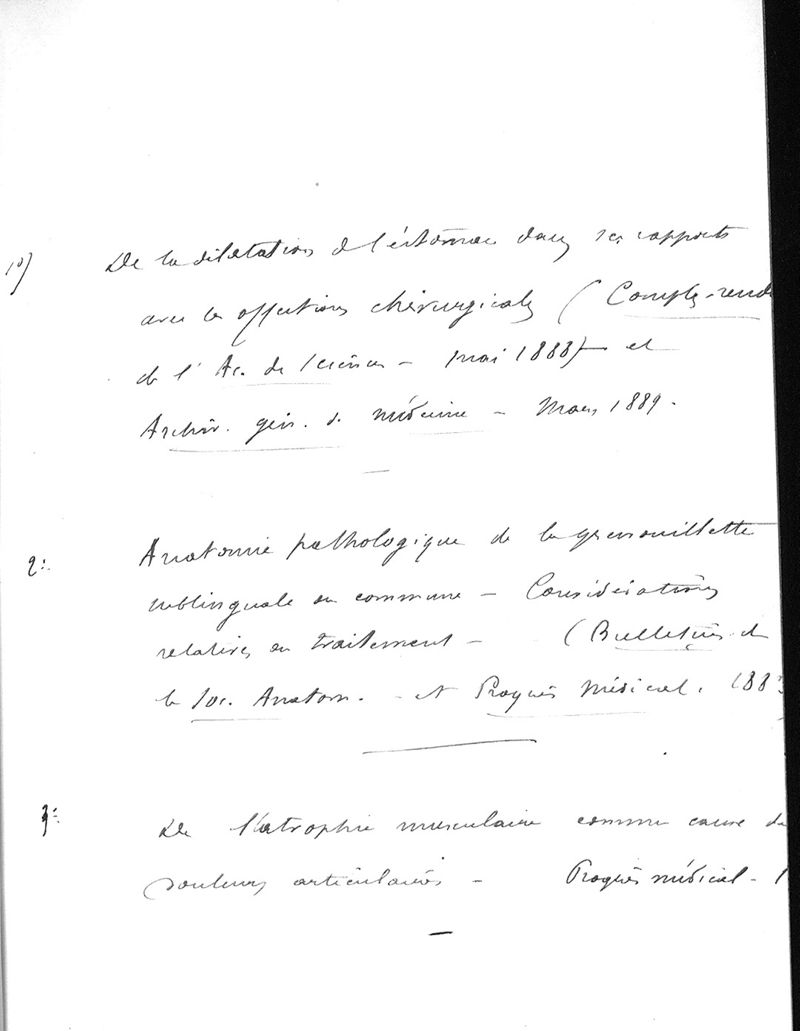 1°/ De la dilatation de l'estomac dans ses rapports
avec les affections chirurgicales (Comptes-rend
de l'Ac. des Sciences - mai 1888) - et
Archiv. gén. de médecine - Mars 1889.
2°: Anatomie pathologique de la grenouillette
sublinguale ou commune - Considérations
relatives au traitement - (Bulletins de
la Soc. Anatom. - et Progrès Médical. 188
3°: De l'atrophie musculaire comme cause de
douleurs articulaires - Progrès médical - 1